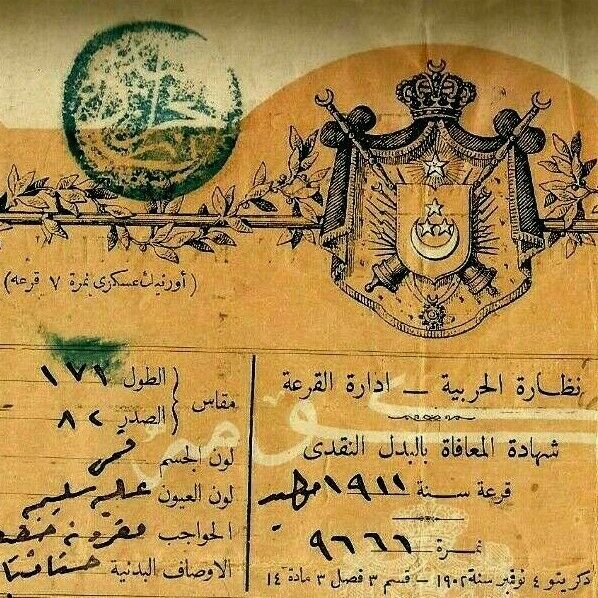 (أورنيك عسكري نمرة ٧ قرعه)
نظارة الحربية — ادارة القرعة
شهادة المعافاة بالبدل النقدى
قرعة سنة ١٩١١
نمرة ٩٦٦٦
دكريتو ٤ نوفبر سنة ١٩٠٢ — قسم ٣ فصل ٣ مادة ١٤
مقاس
الطول ١٧٦
الصدر ٨٢
لون الجسم قمحى
لون العيون عسليه
الحواجب مقرونه
الاوصاف البدنية